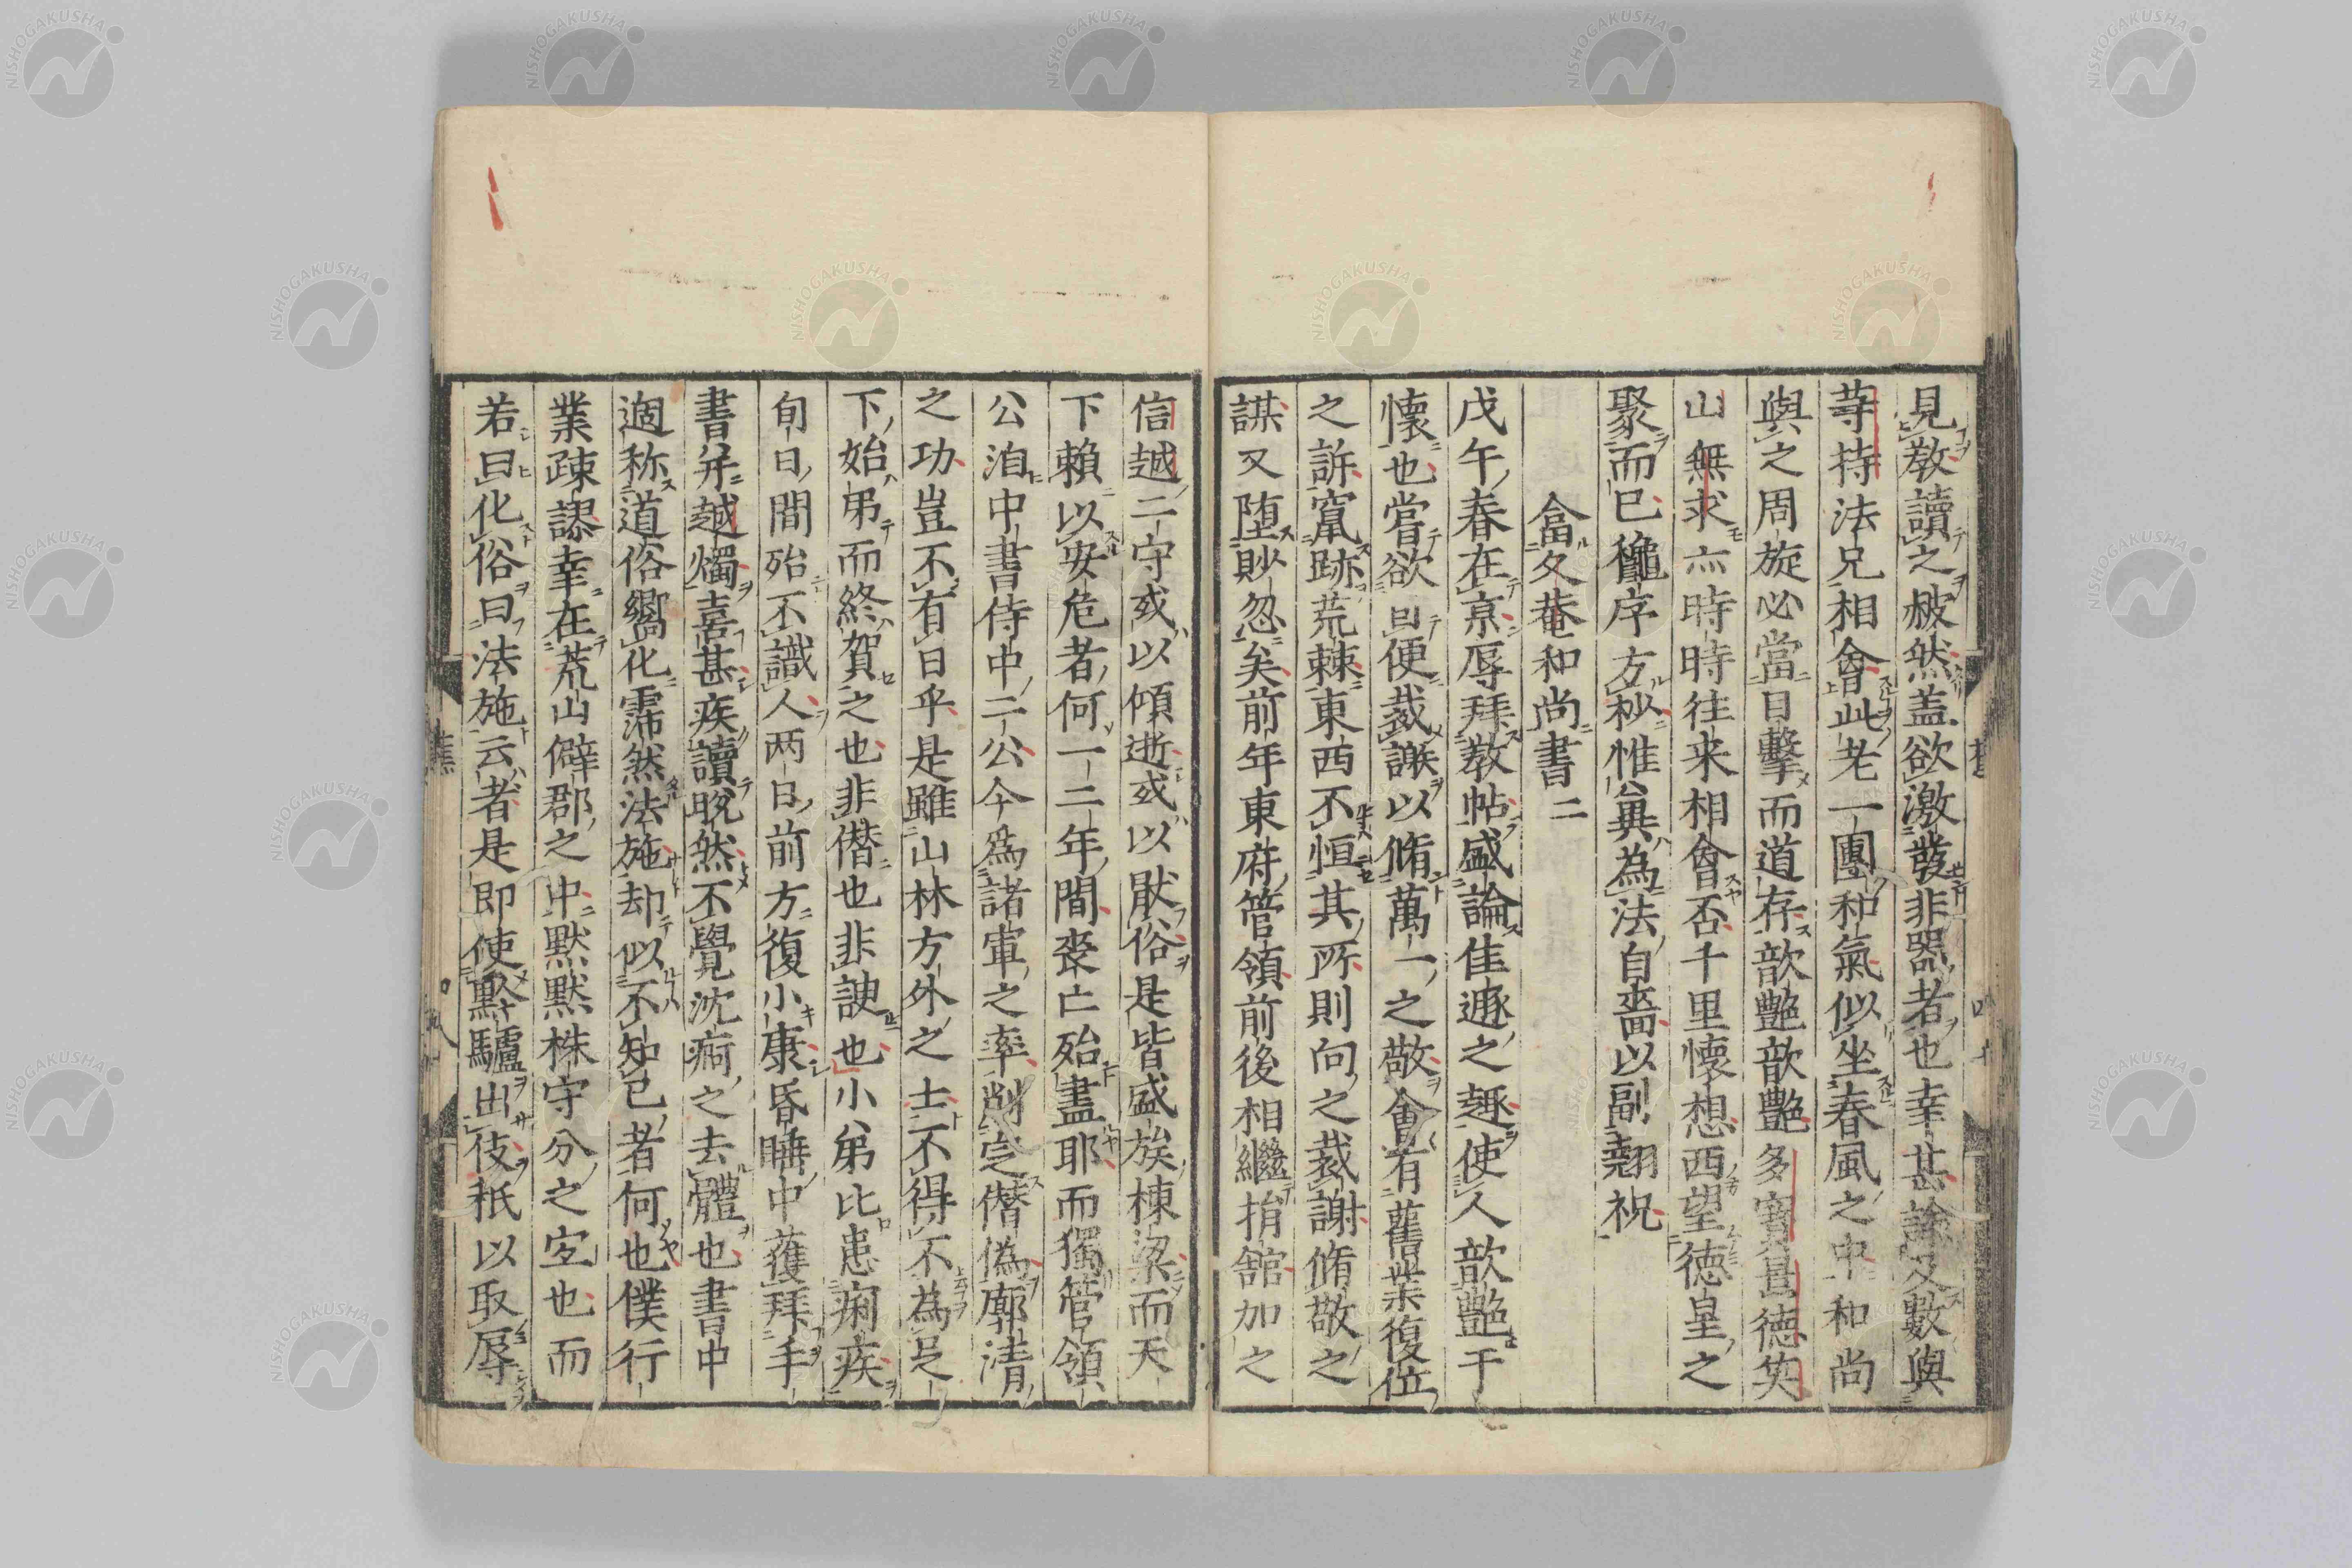 見教讀之赧然盖欲激發非器者也幸甚諭及數與
䓁持法兄相會此老一團和氣似坐春風之中和尚
與之周旋必當目擊而道存歆艶歆艶多寳量德笑
山無求亦時時往来相會否千里懷想西望德星之
聚而已龝序方杪惟兾為法自嗇以副翹祝
答久菴和尚書二
戊午春在京辱拜教帖盛論佳遯之趣使人歆艶于
懷也嘗欲回便裁謝以脩萬一之敬會有舊業復位
之訴竄跡荒棘東西不恒其所則向之裁謝脩敬之
謀又堕眇忽矣前年東府管領前後相繼捐舘加之
信越二守或以傾逝或以厭俗是皆盛族棟梁而天
下賴以安危者何一二年間喪亡殆盡耶而獨管領
公洎中書侍中二公今為諸軍之率剋定僭偽廓清
之功豈不有日乎是雖山林方外之士不得不為足
下始弔而終賀之也非僭也非諛也小弟比患痢疾
旬日間殆不識人两日前方復小康昏睡中蒦拜手
書并越燭喜甚疾讀晩然不覺沈痾之去體也書中
適称道俗嚮化霈然法施却似不知已者何也僕行
業踈謬幸在荒山僻郡之中黙黙株守分之宐也而
若曰化俗曰法施云者是即使黔驢出伎秖以取辱